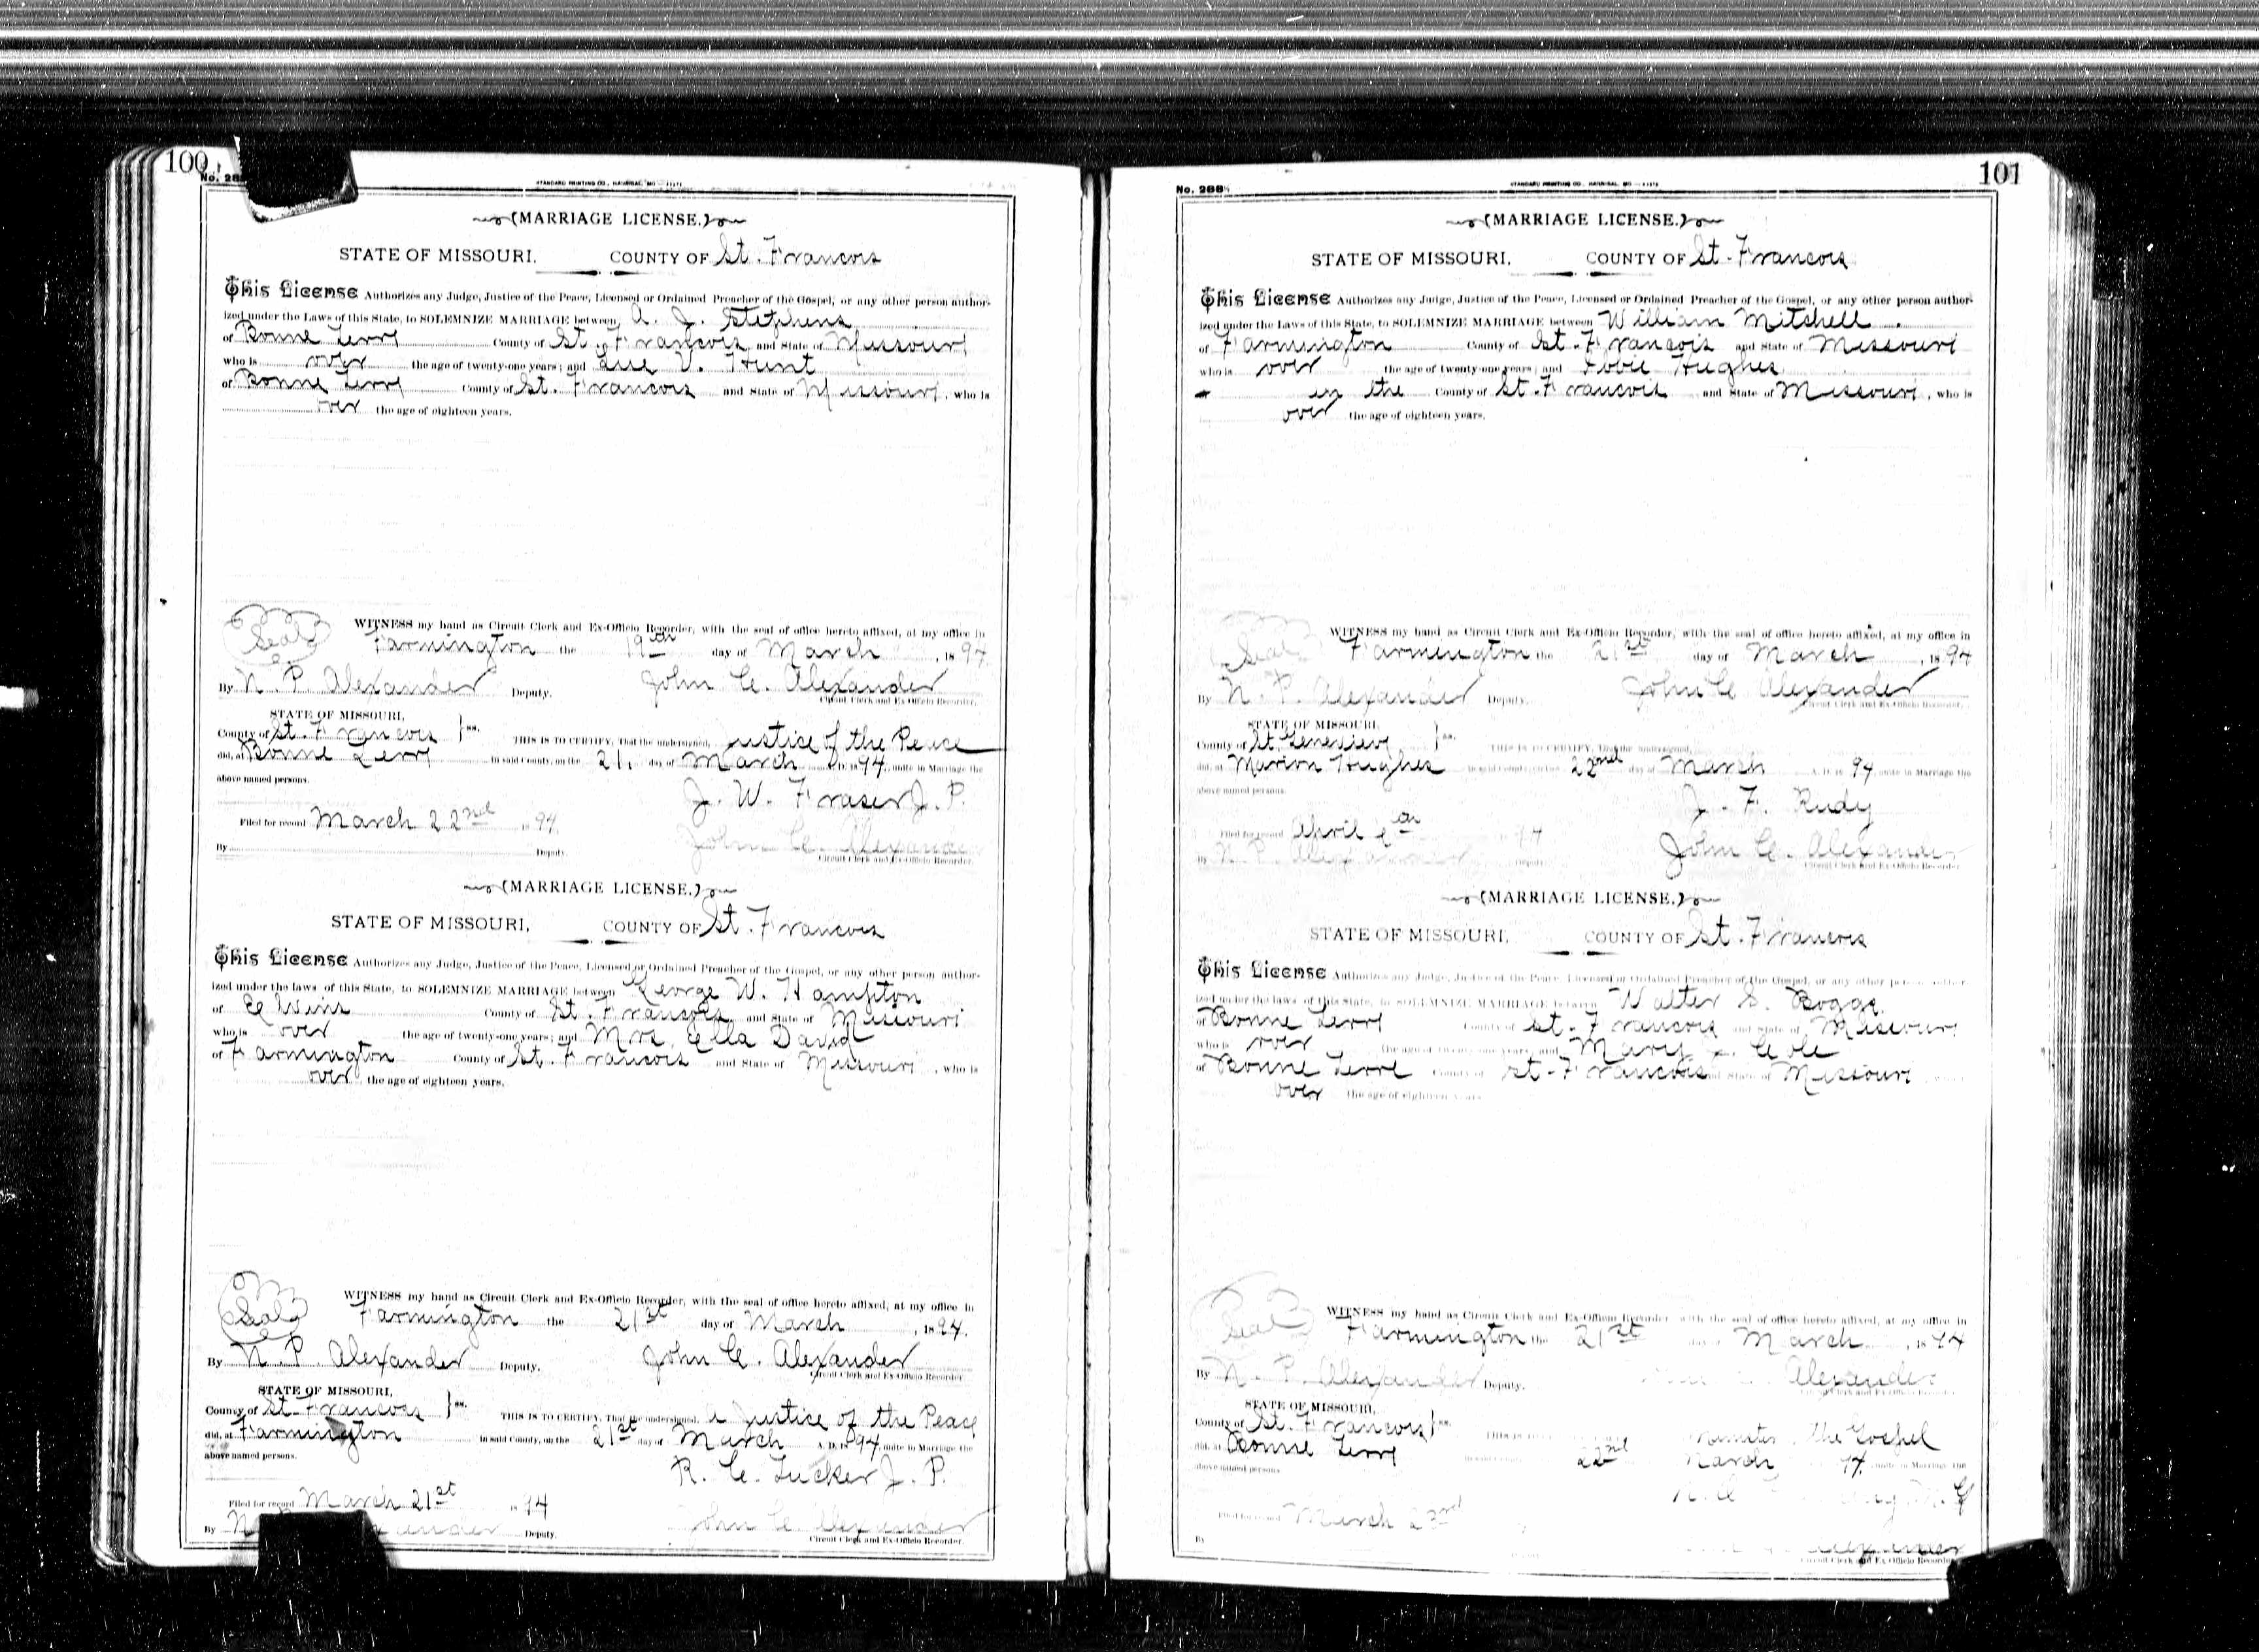 100
No. 28
STANDARD PRINTING CO., HANNIBAL, MO
(MARRIAGE LICENSE.)
STATE OF MISSOURI, COUNTY OF St. Francois
This License Authorizes any Judge, Justice of the Peace, Licensed or Ordained Preacher of the Gospel, or any other person author-
ized under the Laws of this State, to SOLEMNIZE MARRIAGE between A. J. Stephens
of Bonne Terre County of St. Francois and State of Missouri
who is over the age of twenty-one years; and Sue V. Hunt
of Bonne Terre County of St. Francois and State of Missouri, who is
over the age of eighteen years.
WITNESS my hand as Circuit Clerk and Ex-Officio Recorder, with the seal of office hereto affixed, at my office in
Seal Farmington the 19th day of March, 1894.
By N. P. Alexander Deputy. John C. Alexander
Circuit Clerk and Ex-Officio Recorder.
STATE OF MISSOURI,
County of St. Francois } ss. THIS IS TO CERTIFY, That the undersigned, Justice of the Peace
did, at Bonne Terre in said County, on the 21. day of March A.D. 1894, unite in Marriage the
above named persons.
J. W. Fraser J. P.
Filed for record March 22nd 1894.
John C. Alexander
By Deputy. Circuit Clerk and Ex-Officio Recorder.
(MARRIAGE LICENSE.)
STATE OF MISSOURI, COUNTY OF St. Francois
This License Authorizes any Judge, Justice of the Peace, Licensed or Ordained Preacher of the Gospel, or any other person author-
ized under the laws of this State, to SOLEMNIZE MARRIAGE between George W. Hampton
of Elvins County of St. Francois and State of Missouri
who is over the age of twenty-one years; and Mrs. Ella David
of Farmington County of St. Francois and State of Missouri, who is
over the age of eighteen years.
WITNESS my hand as Circuit Clerk and Ex-Officio Recorder, with the seal of office hereto affixed, at my office in
Seal Farmington the 21st day of March, 1894.
By N. P. Alexander Deputy. John C. Alexander
Circuit Clerk and Ex-Officio Recorder.
STATE OF MISSOURI,
County of St. Francois } ss. THIS IS TO CERTIFY, That the undersigned, a Justice of the Peace
did, at Farmington in said County, on the 21st day of March A.D. 1894, unite in Marriage the
above named persons.
R. C. Tucker J. P.
Filed for record March 21st 1894
By N. Deputy. John C. Alexander
Circuit Clerk and Ex-Officio Recorder.
101
No. 288
STANDARD PRINTING CO., HANNIBAL, MO
(MARRIAGE LICENSE.)
STATE OF MISSOURI, COUNTY OF St. Francois
This License Authorizes any Judge, Justice of the Peace, Licensed or Ordained Preacher of the Gospel, or any other person author-
ized under the Laws of this State, to SOLEMNIZE MARRIAGE between William Mitchell
of Farmington County of St. Francois and State of Missouri
who is over the age of twenty-one years; and Hughes
in the County of St. Francois and State of Missouri, who is
over the age of eighteen years.
WITNESS my hand as Circuit Clerk and Ex-Officio Recorder, with the seal of office hereto affixed, at my office in
Seal Farmington the 21st day of March, 1894
By N. P. Alexander Deputy. John C Alexander
Circuit Clerk and Ex-Officio Recorder.
STATE OF MISSOURI,
County of St. Genevieve } ss. THIS IS TO CERTIFY, That the undersigned,
did, at Marion Hughes in said County, on the 22nd day of March A.D. 1894, unite in Marriage the
above named persons.
J. F. Rudy
Filed for record April 1894
John C. Alexander
By N. P. Alexander Deputy. Circuit Clerk and Ex-Officio Recorder
(MARRIAGE LICENSE.)
STATE OF MISSOURI, COUNTY OF St. Francois
This License Authorizes any Judge, Justice of the Peace, Licensed or Ordained Preacher of the Gospel, or any other person author-
ized under the laws of this State, to SOLEMNIZE MARRIAGE between Walter S. Boggs
of Bonne Terre County of St. Francois and State of Missouri
who is over the age of twenty-one years; and Mary Cole
of Bonne Terre County of St. Francois and State of Missouri
over the age of eighteen years
WITNESS my hand as Circuit Clerk and Ex-Officio Recorder with the seal of office hereto affixed, at my office in
Seal Farmington the 21st day of March, 1894
By N. P. Alexander Deputy. Alexander
STATE OF MISSOURI,
County of St. Francois } ss. THIS IS Minister the Gospel
did, at Bonne Terre 22nd March 94. unite in Marriage the
above named persons
Filed for record March 23rd
By Alexander
Circuit Clerk and Ex-Officio Recorder